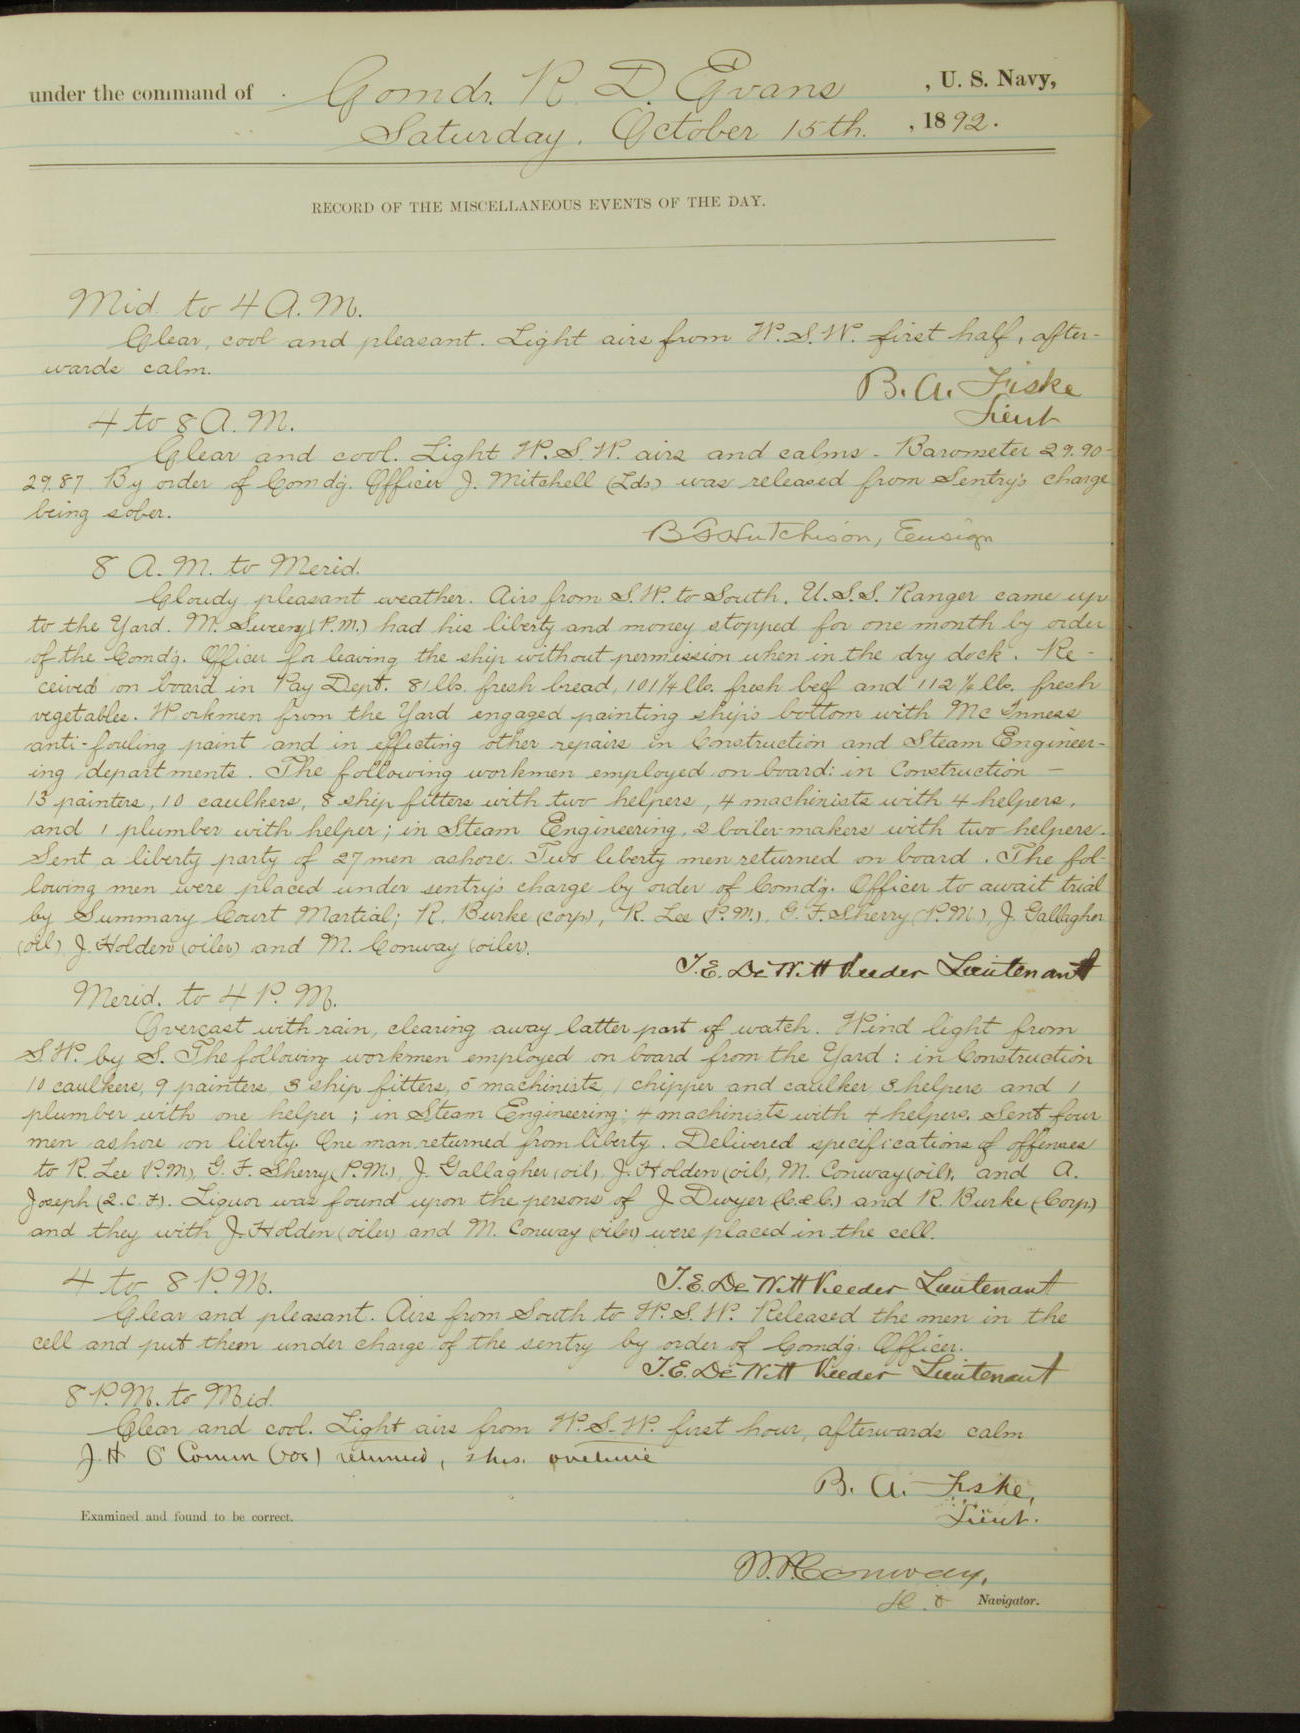 under the command of Comdr. R. D. Evans, U. S. Navy,
Saturday, October 15th., 1892.
RECORD OF THE MISCELLANEOUS EVENTS OF THE DAY.
Mid. to 4 A.M.
Clear, cool and pleasant. Light airs from W.S.W. first half, after-
wards calm.
B. A. Fiske
Lieut
4 to 8 A.M.
Clear and cool. Light W.S.W. airs and calms - Barometer 29.90-
29.87. By order of Comd'g. Officer J. Mitchell (Lds) was released from Sentry's charge
being sober.
Hutchison, Ensign
8 A.M. to Merid.
Cloudy pleasant weather. Airs from S.W. to South. U.S.S. Ranger came up
to the Yard. M. Sweeny (P.M.) had his liberty and money stopped for one month by order
of the Comd'g. Officer for leaving the ship without permission when in the dry dock. Re-
ceived on board in Pay Dept. 81 lbs. fresh bread, 101¼ lbs. fresh beef and 112 lbs. fresh
vegetables. Workmen from the Yard engaged painting ship's bottom with Mc Inness
anti-fouling paint and in effecting other repairs in Construction and Steam Engineer-
ing departments. The following workmen employed on board: in Construction —
13 painters, 10 caulkers, 8 ship fitters with two helpers, 4 machinists with 4 helpers,
and 1 plumber with helper; in Steam Engineering, 2 boiler-makers with two helpers.
Sent a liberty party of 27 men ashore. Two liberty men returned on board. The fol-
lowing men were placed under sentry's charge by order of Comd'g. Officer to await trial
by Summary Court Martial; R. Burke (corp), R. Lee (P.M.), G. F. Sherry (P.M.), J. Gallagher
(oil) J. Holden (oiler) and M. Conway (oiler).
T. E. DeWitt Veeder Lieutenant
Merid. to 4 P.M.
Overcast with rain, clearing away latter part of watch. Wind light from
S.W. by S. The following workmen employed on board from the Yard: in Construction
10 caulkers, 9 painters, 3 ship fitters, 5 machinists, 1 chipper and caulker, 3 helpers and 1
plumber with one helper; in Steam Engineering: 4 machinists with 4 helpers. Sent four
men ashore on liberty. One man returned from liberty. Delivered specifications of offenses
to R. Lee (P.M), G. F. Sherry (P.M.), J. Gallagher (oil) J. Holden (oil), M. Conway (oil), and A.
Joseph (S.C.F). Liquor was found upon the persons of J Dwyer (C.&C.) and R. Burke (Corp.)
and they with J. Holden (oiler) and M. Conway (oiler) were placed in the cell.
T. E. DeWitt Veeder Lieutenant
4 to 8 P.M.
Clear and pleasant. Airs from South to W.S.W. Released the men in the
cell and put them under charge of the sentry by order of Comd'g. Officer.
T. E. DeWitt Veeder Lieutenant
8 P.M. to Mid.
Clear and cool. Light airs from W.S.W. first hour, afterwards calm
J. H. returned, hrs. overtime
B. A. Fiske,
Lieut.
Examined and found to be correct.
Conway,
Navigator.